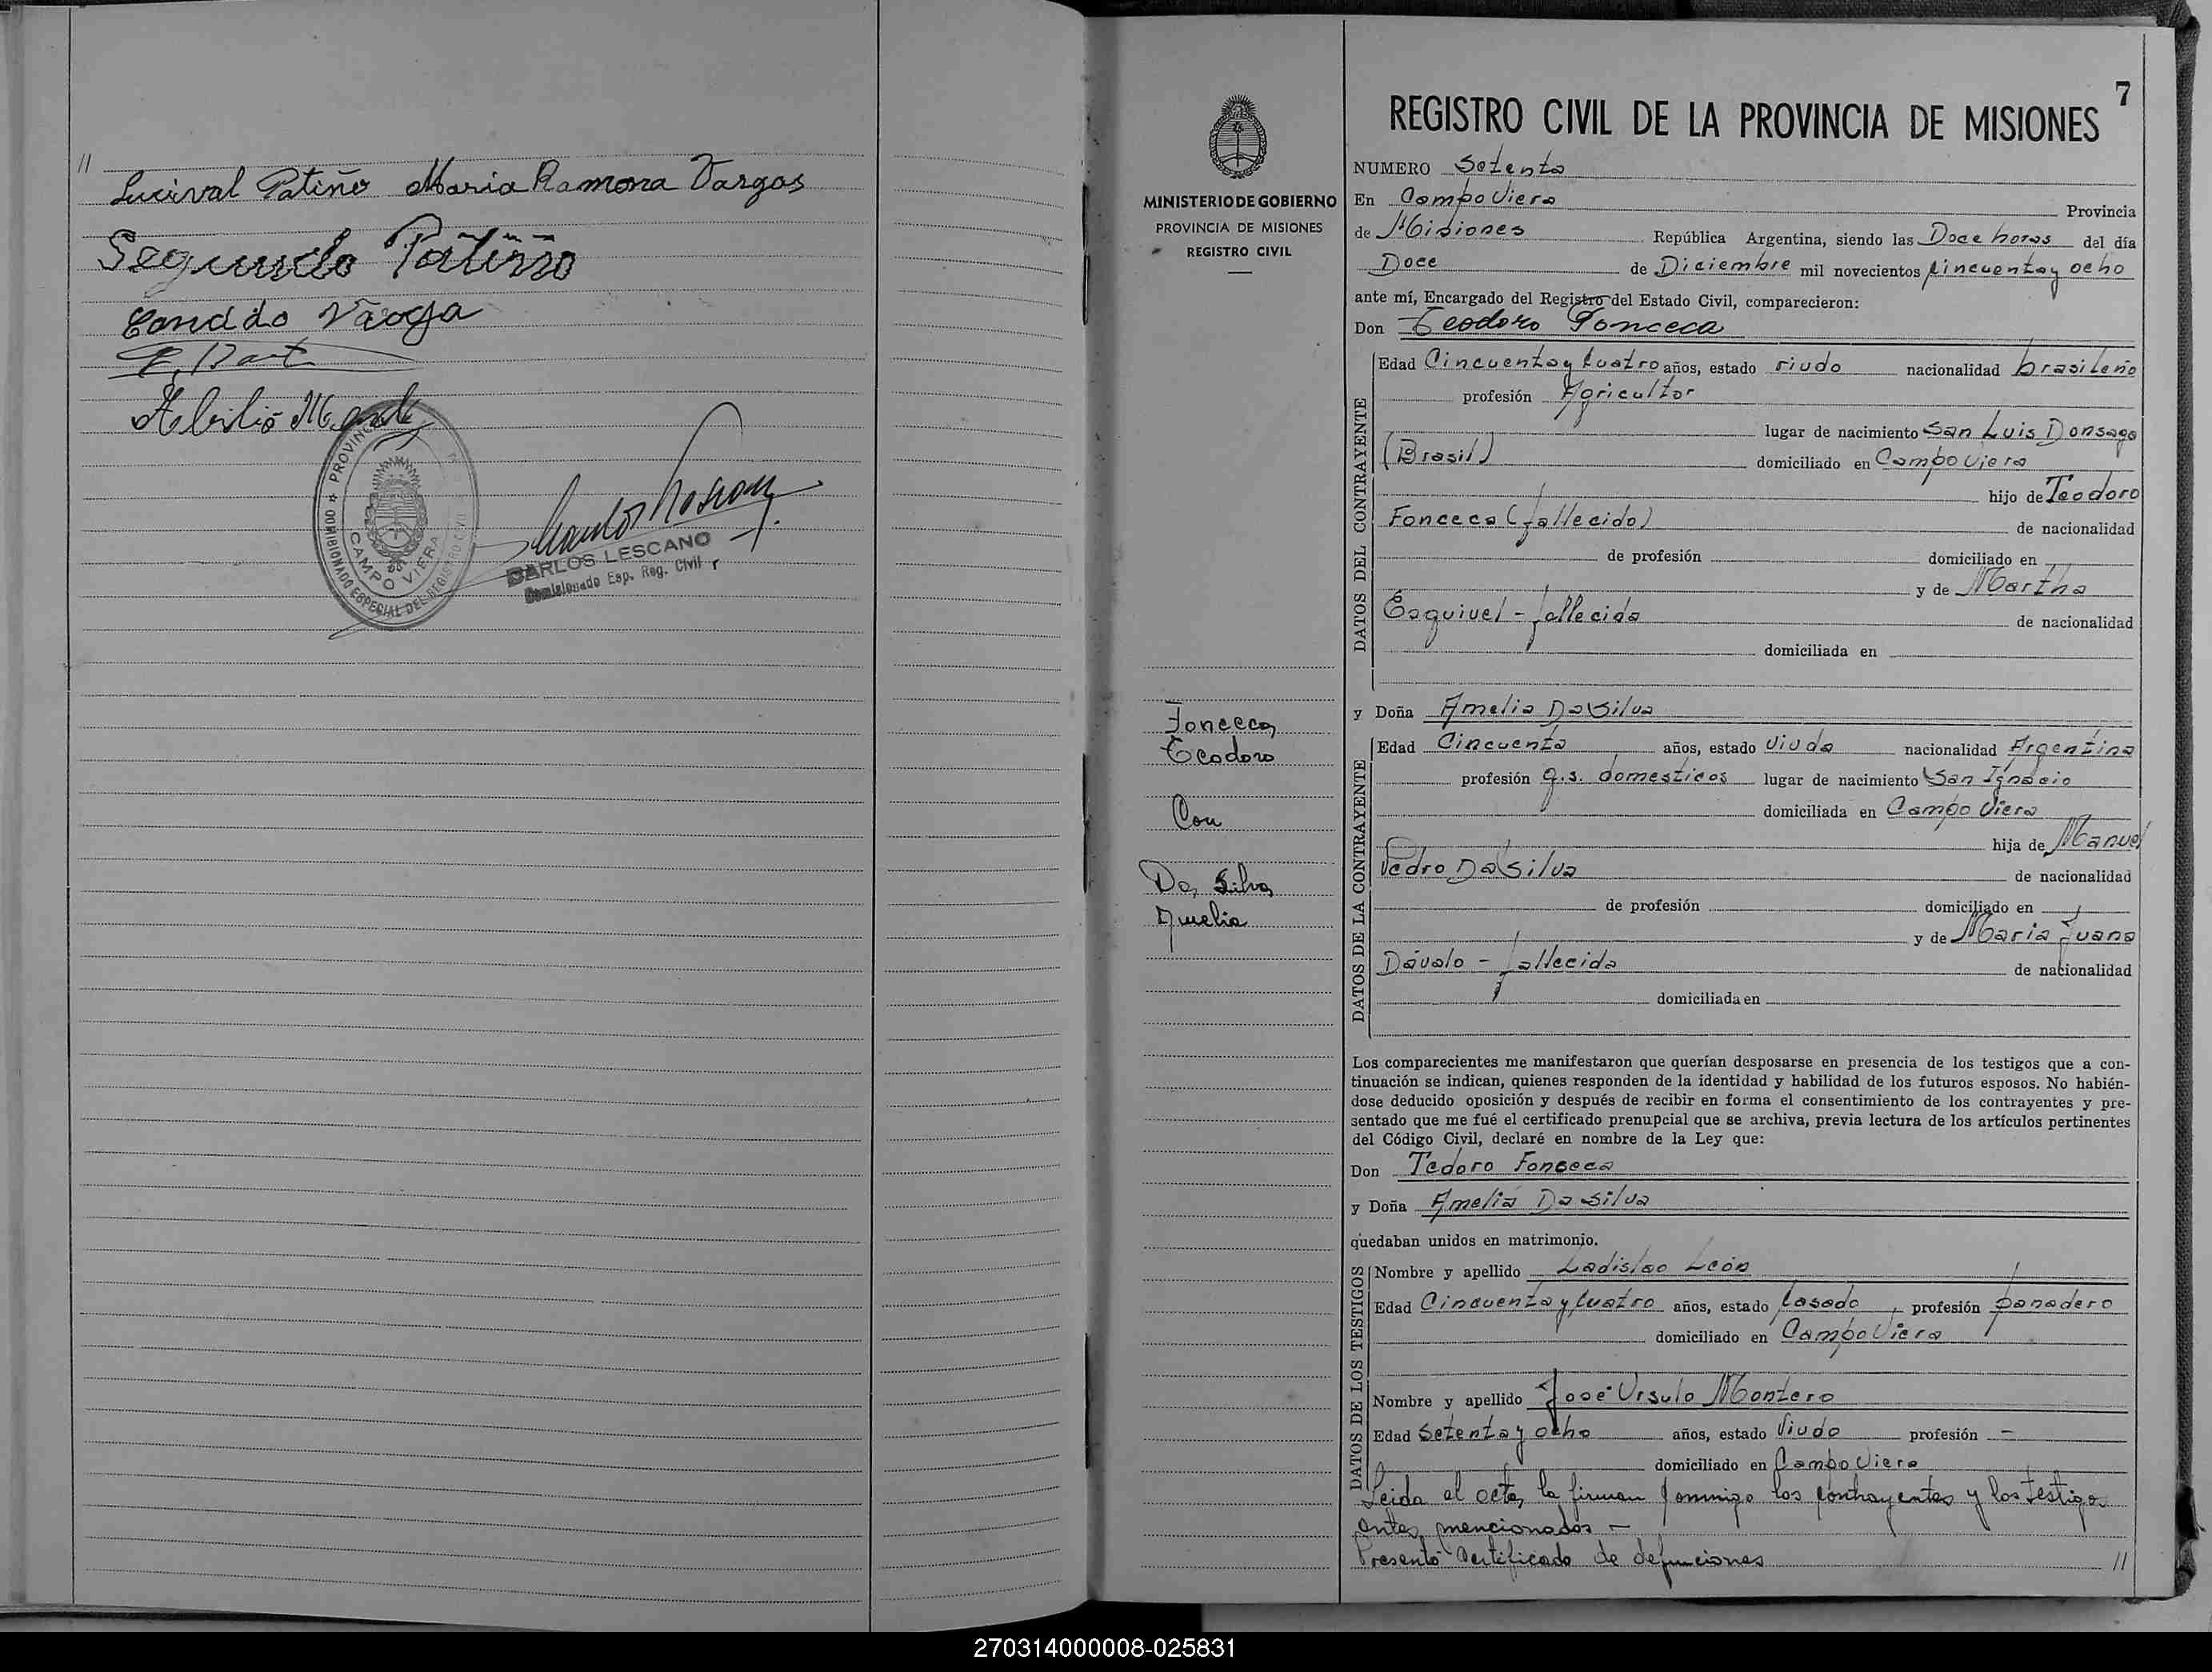 //
Lucival Patiño Maria Ramona Vargas
Segundo Patiño
Candido Varga
Abilio
PROVINCIA
CAMPO VIERA
COMISIONADO ESPECIAL DEL REGISTRO CIVIL
CARLOS LESCANO
Comisionado Esp. Reg. Civil
MINISTERIO DE GOBIERNO
PROVINCIA DE MISIONES
REGISTRO CIVIL
Fonceca
Teodoro
Con
Da Silva
Amelia
7
REGISTRO CIVIL DE LA PROVINCIA DE MISIONES
NUMERO Setenta
En Campo Viera Provincia
de Misiones República Argentina, siendo las Doce horas del día
Doce de Diciembre mil novecientos cincuenta y ocho
ante mí, Encargado del Registro del Estado Civil, comparecieron:
Don Teodoro Fonceca
DATOS DEL CONTRAYENTE
Edad Cincuenta y cuatro años, estado viudo nacionalidad brasileño
profesión Agricultor
lugar de nacimiento San Luis Donsaga
(Brasil) domiciliado en Campo Viera
hijo de Teodoro
Fonceca (fallecido) de nacionalidad
de profesión domiciliado en
y de Martha
Esquivel - fallecida de nacionalidad
domiciliada en
y Doña Amelia Da Silva
DATOS DE LA CONTRAYENTE
Edad Cincuenta años, estado viuda nacionalidad Argentina
profesión q.s. domesticos lugar de nacimiento San Ignacio
domiciliada en Campo Viera
hija de Manuel
Pedro Da Silva de nacionalidad
de profesión domiciliado en
y de Maria Juana
Dávalo - fallecida de nacionalidad
domiciliada en
Los comparecientes me manifestaron que querían desposarse en presencia de los testigos que a con-
tinuación se indican, quienes responden de la identidad y habilidad de los futuros esposos. No habién-
dose deducido oposición y después de recibir en forma el consentimiento de los contrayentes y pre-
sentado que me fué el certificado prenupcial que se archiva, previa lectura de los artículos pertinentes
del Código Civil, declaré en nombre de la Ley que:
Don Tedoro Fonseca
y Doña Amelia Da Silva
quedaban unidos en matrimonio.
DATOS DE LOS TESTIGOS
Nombre y apellido Ladislao León
Edad Cincuenta y cuatro años, estado casado, profesión panadero
domiciliado en Campo Viera
Nombre y apellido José Ursulo Montero
Edad Setenta y ocho años, estado Viudo profesión -
domiciliado en Campo Viera
Leida el acta, la firman conmigo los contrayentes y los testigos
antes mencionados -
Presentó Certificado de defunciones //
270314000008-025831